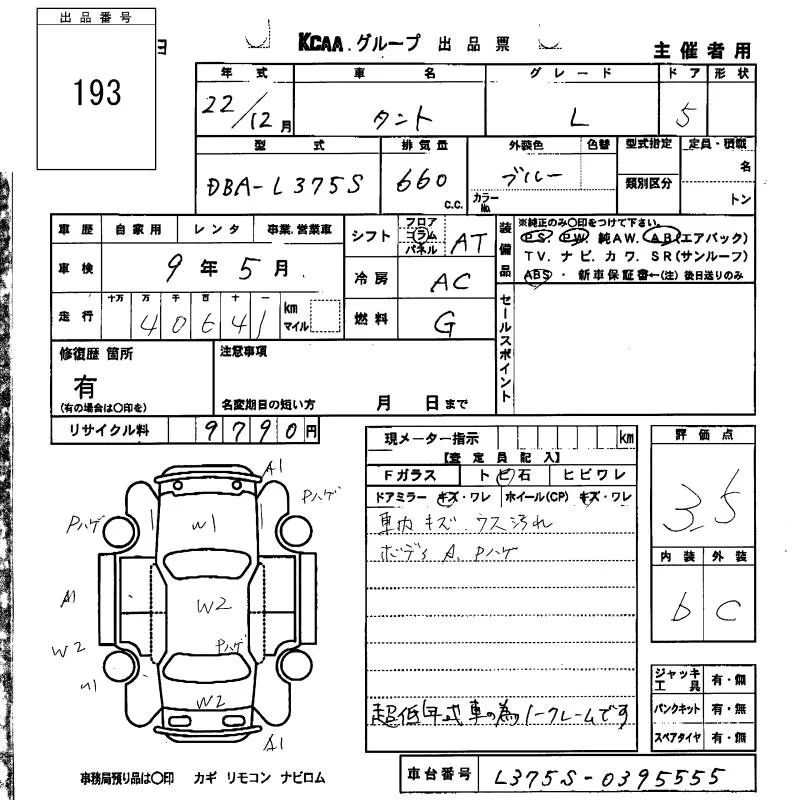 出品番号
193
KCAA.グループ 出品票
主催者用
年式 車名 グレード ドア 形状
22/12月 タント L 5
型式 排気量 外装色 色替 型式指定 定員・積載
類別区分
DBA-L375S 660 c.c. ブルー カラーNo. 名 トン
車歴 自家用 レンタ 事業.営業車
シフト フロア コラム パネル AT
装備品 ※純正のみ〇印をつけて下さい。
PS. PW. 純AW. AB(エアバック)
TV. ナビ. カワ. SR(サンルーフ)
ABS・新車保証書←(注)後日送りのみ
車検 9年5月
冷房 AC
走行 十万 万 千 百 十 一 km マイル
40641
燃料 G
セールスポイント
修復歴 箇所
有
(有の場合は〇印を)
注意事項
名変期日の短い方 月 日まで
リサイクル料 9790円
現メーター指示 km
【査定員記入】
Fガラス トビ石 ヒビワレ
ドアミラー キズ・ワレ ホイール(CP) キズ・ワレ
車内キズ ウス汚れ
ボディA. Pハゲ
超低年式車の為ノークレームです
評価点
3.5
内装 外装
b C
ジャッキ工具 有・無
パンクキット 有・無
スペアタイヤ 有・無
A1
Pハゲ
Pハゲ
W1
A1
W2
W2
Pハゲ
W2
A1
事務局預り品は〇印 カギ リモコン ナビロム
車台番号 L375S-0395555